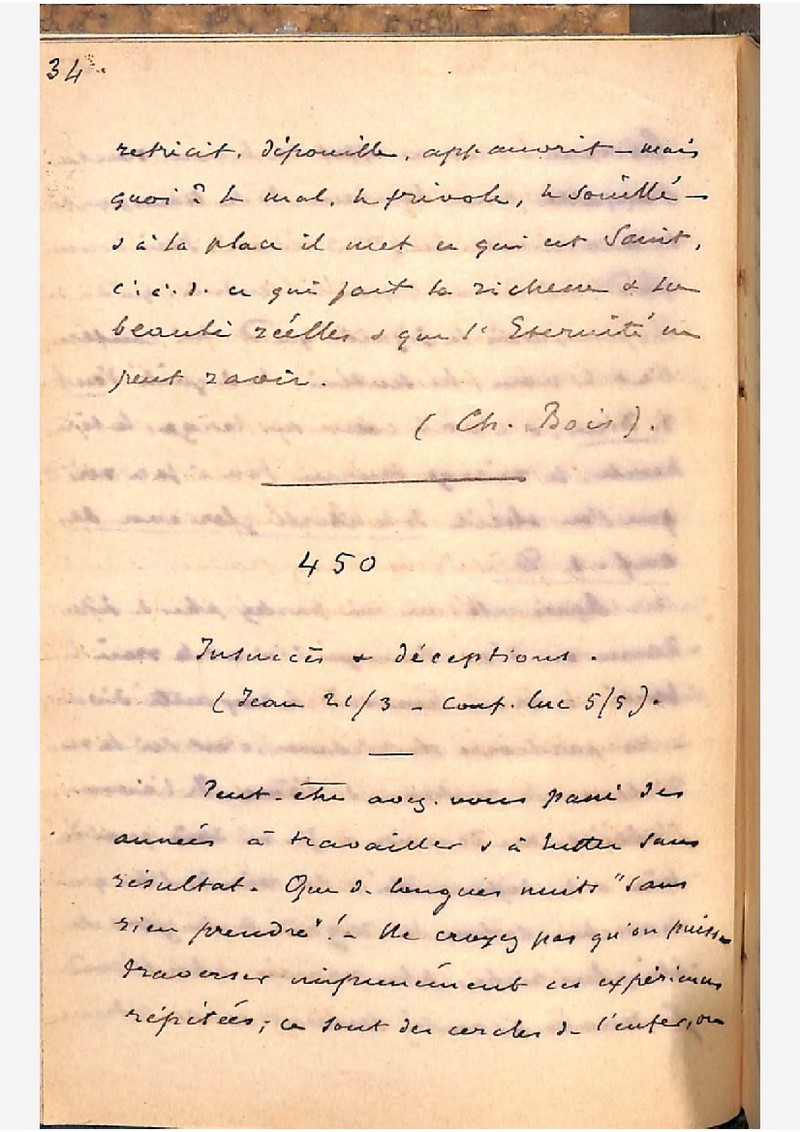 34.
retrécit, dépouille, appauvrit – mais
quoi? le mal, le frivole, le souillé –
& à la place il met ce qui est Saint,
c.à.d. ce qui fait la richesse & la
beauté réelles & que l'Eternité ne
peut ravir.
(Ch. Bois).
450
Insuccès & déceptions.
(Jean 21/3 – Conf. Luc 5/5).
Peut-être avez-vous passé des
années à travailler & à lutter sans
résultat. Que de longues nuits "sans
rien prendre"! – Ne croyez pas qu'on puisse
traverser impunément ces expériences
répétées; ce sont des cercles de l'enfer, on